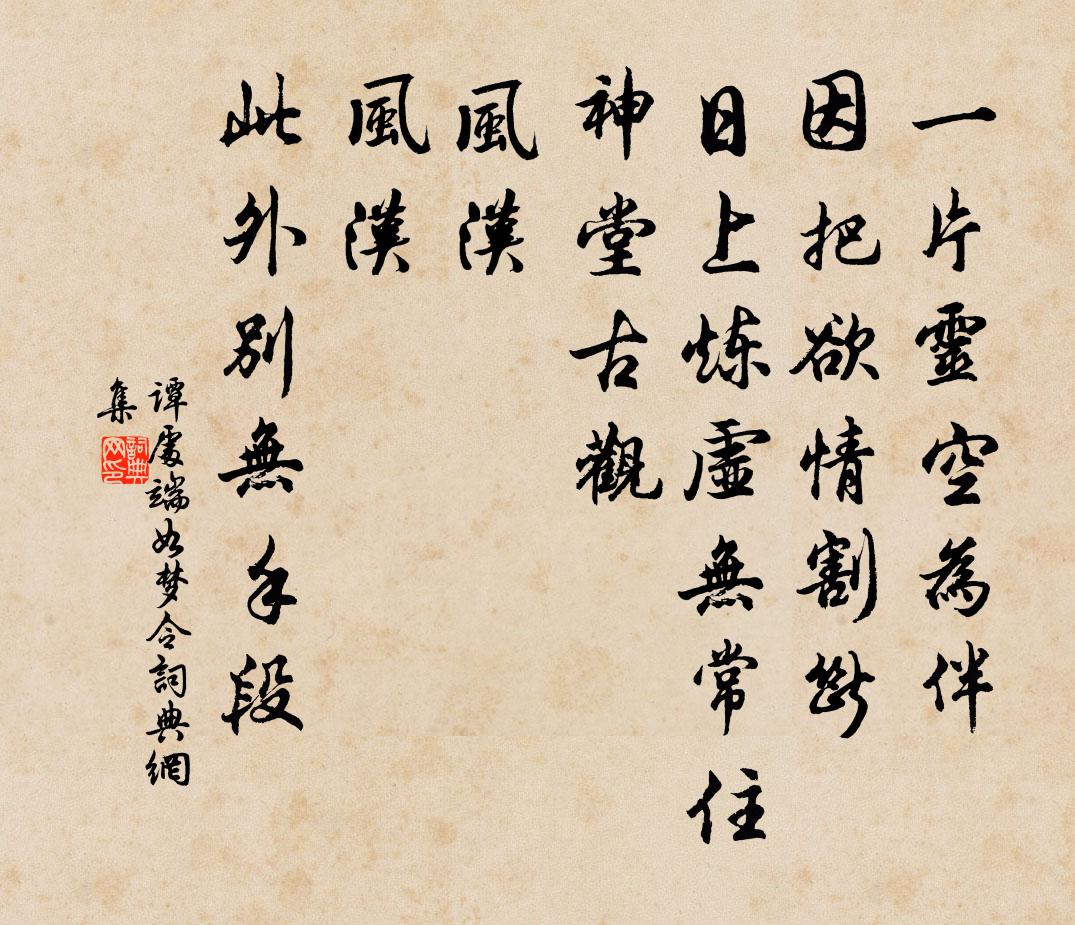 一片靈空為伴
因把欲情割斷
日上炼虛無常住
神堂古觀
風漢
風漢
此外別無手段
譚處端如梦令詞典網
集
詞典网印